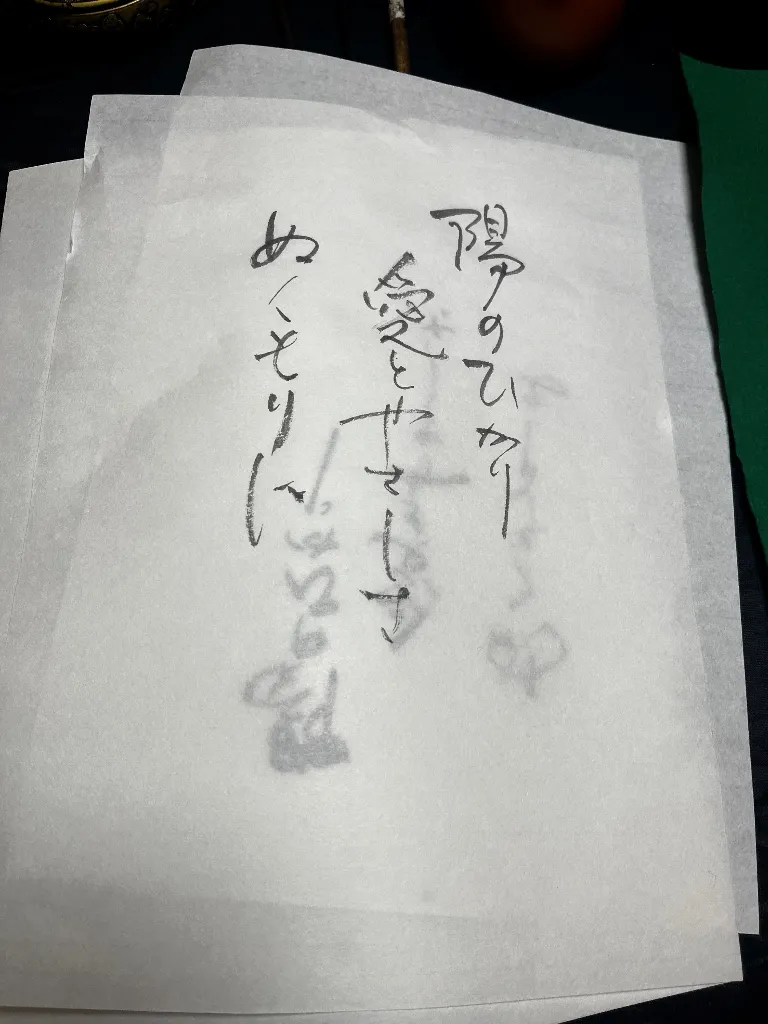 陽のひかり
愛とやさしさ
ぬくもりは